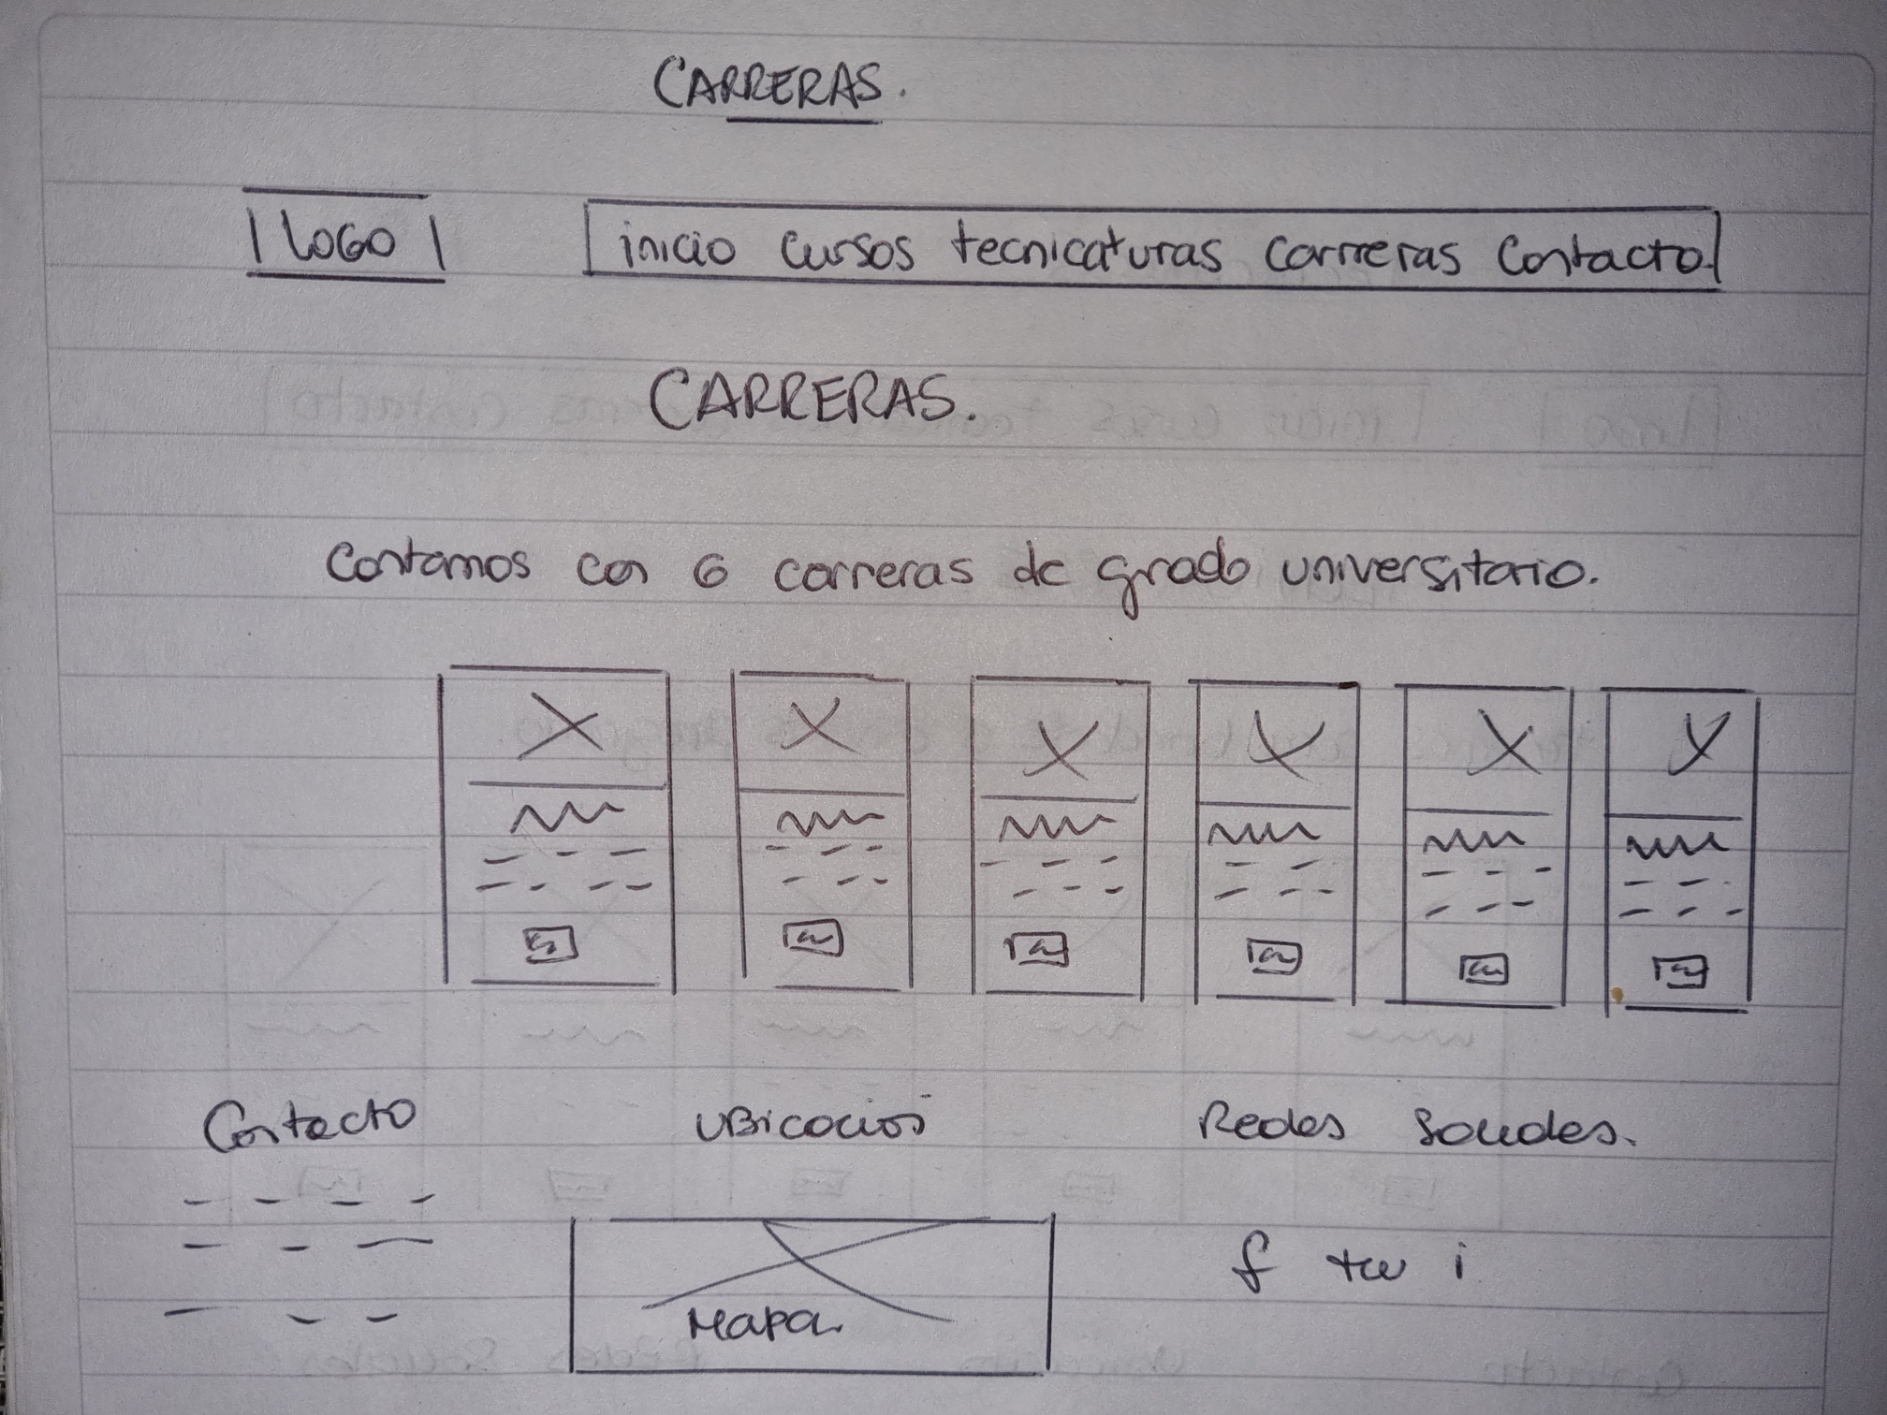 CARRERAS.
LOGO inicio cursos tecnicaturas carreras contacto
CARRERAS.
Contamos con 6 carreras de grado universitario.
Contacto Ubicacion Redes Sociales.
f tw i
Mapa.